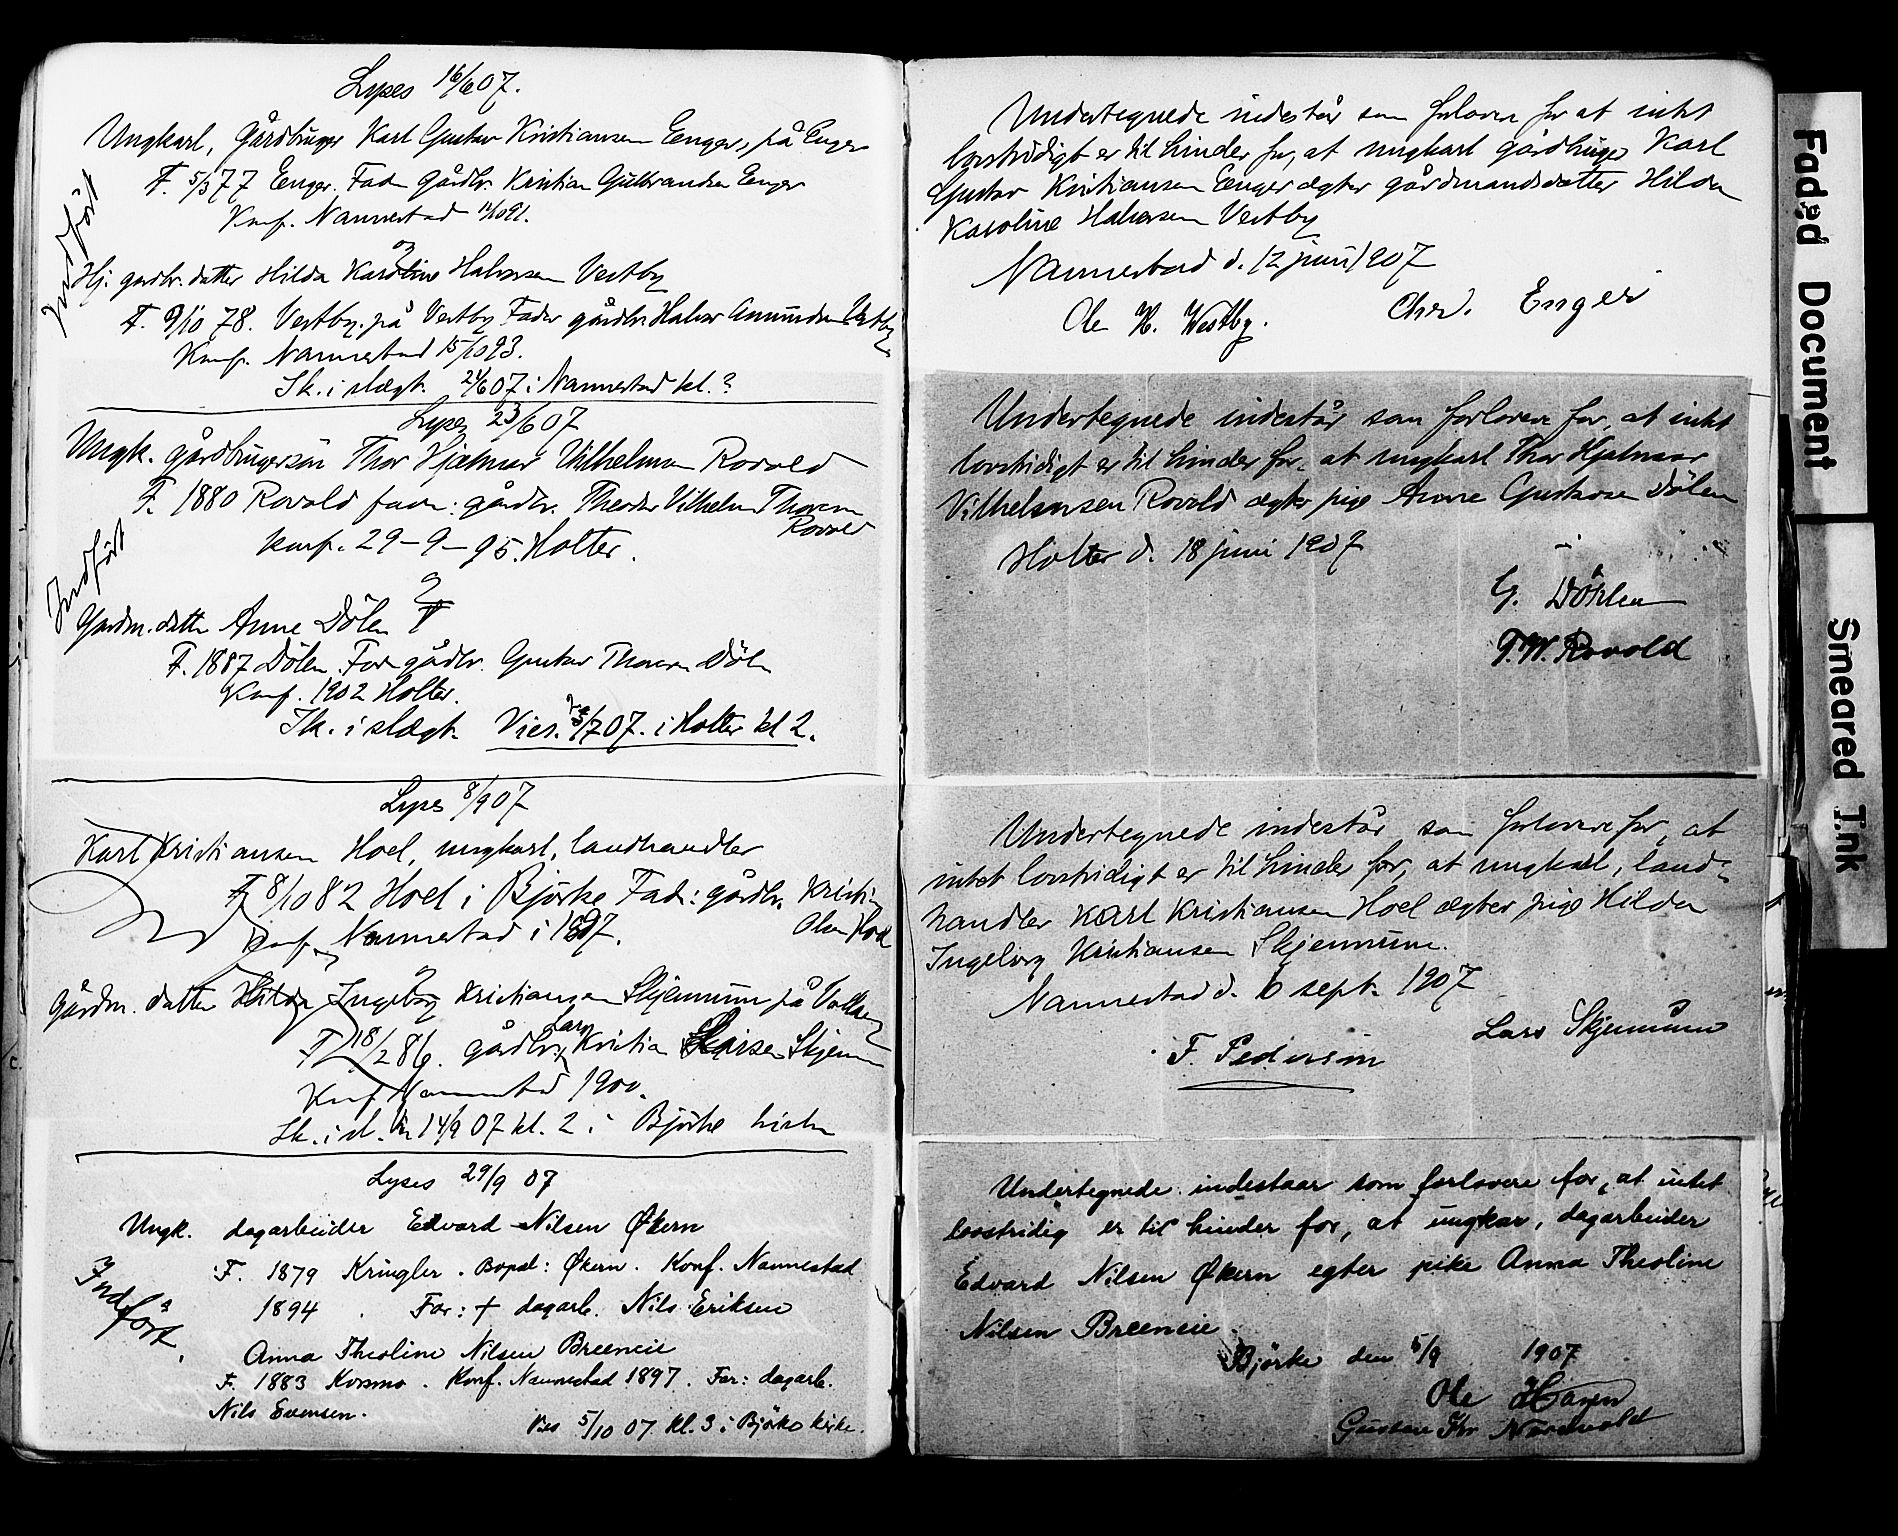 Lyses 16/6 07.
Ungkarl, Gårdbruger Karl Gustav Kristiansen Enger, på Enger
F. 5/3 77 Enger. Fader gårdbr. Kristian Gulbrandsen Enger
Konf. Nannestad 11/10 91.
Indført
Hj. gardbr. datter Hilda Karoline Halvorsen Vestby
F. 9/10 78. Vestby. på Vestby Fader gårdbr. Halvor Amundsen Vestby
Konf. Nannestad 15/10 93.
Sk. i slægt. 21/6 07 i Nannestad kl. ?
Lyses 23/6 07
Ungk. gårdbrugersön Thor Hjalmar Vilhelmsen Rovold
F. 1880 Rovold faar: gårdbr. Theodor Vilhelm Thoresen
Rovold
Konf. 29-9-95. Holter.
Indført
Gardm. datter Anne Dölen
F. 1887 Dölen. Far gårdbr. Gustav Thoresen Dölen
Konf. 1902 Holter.
Sk. i slægt. Vies. 5/7 07. i Holter kl 2.
Lyses 8/9 07
Karl Kristiansen Hoel, ungkarl, landhandler
F. 8/10 82 Hoel i Bjørke Fader: gårdbr. Kristian
Olsen Hoel
Konf. Nannestad i 1897.
Gårdm. datter Hilda Ingeborg Kristiansen Skjennum på
F. 18/2 86. gårdbr. Lars Kristian Skjennum
Konf. Nannestad 1900.
Sk. i sl. 14/9 07 kl. 2 i Bjørke kirke
Lyses 29/9 07
Ungk. dagarbeider Edvard Nilsen Økern
F. 1879 Kringler. Bopæl: Økern. Konf. Nannestad
1894. Far: + dagarb. Nils Eriksen
Indført.
Anna Theoline Nilsen Breeneie
F. 1883 Kosmo. Konf. Nannestad 1897. Far: dagarb.
Nils Evensen.
Vies 5/10 07 kl. 3 i Bjørke kirke.
Undertegnede indestår som forlovere for at intet
lovstridigt er til hinder for, at ungkarl gårdbruger Karl
Gustav Kristiansen Enger ægter gårdmandsdatter Hilda
Karoline Halvorsen Vestby
Nannestad d. 12 juni 1907
Ole H. Westby.
Chr. Enger
Undertegnede indestår som forlovere for, at intet
lovstridigt er til hinder for, at ungkarl Thor Hjalmar
Vilhelmsen Rovold ægter pige Anne Gustavsen Dölen
Holter d. 18 juni 1907
G. Döhlen
T. W. Rovold
Undertegnede indestår som forlovere for, at
intet lovstridigt er til hinder for, at ungkarl, land-
handler Karl Kristiansen Hoel ægter pige Hilda
Ingeborg Kristiansen Skjennum.
Nannestad d. 6 sept. 1907
Lars Skjennum
F. Pedersen
Undertegnede indestaar som forlovere for, at intet
lovstridig er til hinder for, at ungkar, dagarbeider
Edvard Nilsen Økern egter pike Anna Theoline
Nilsen Breeneie.
Bjørke den 5/9 1907
Ole Hagen
Gustav Kr Nordvold
Faded Document
Smeared Ink